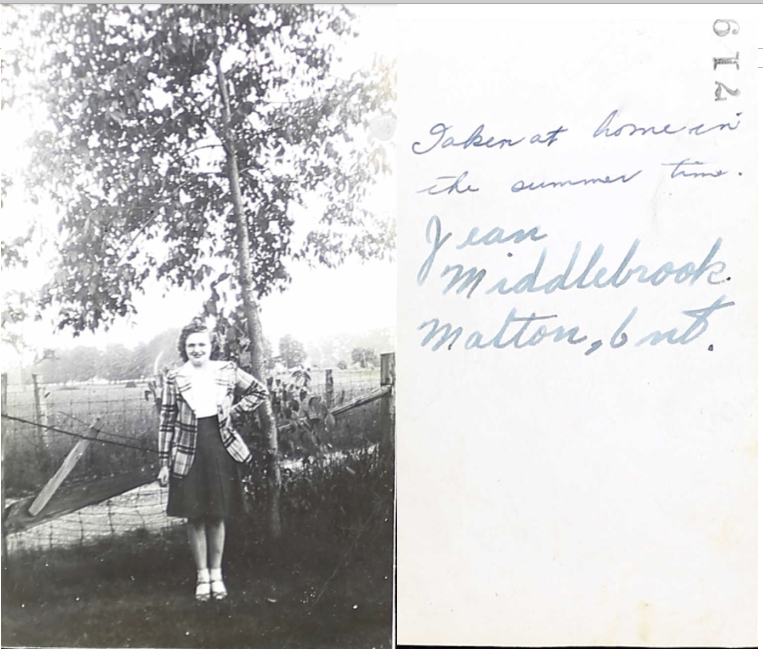 Taken at home in
the summer time.
Jean
Middlebrook.
Malton, Ont.